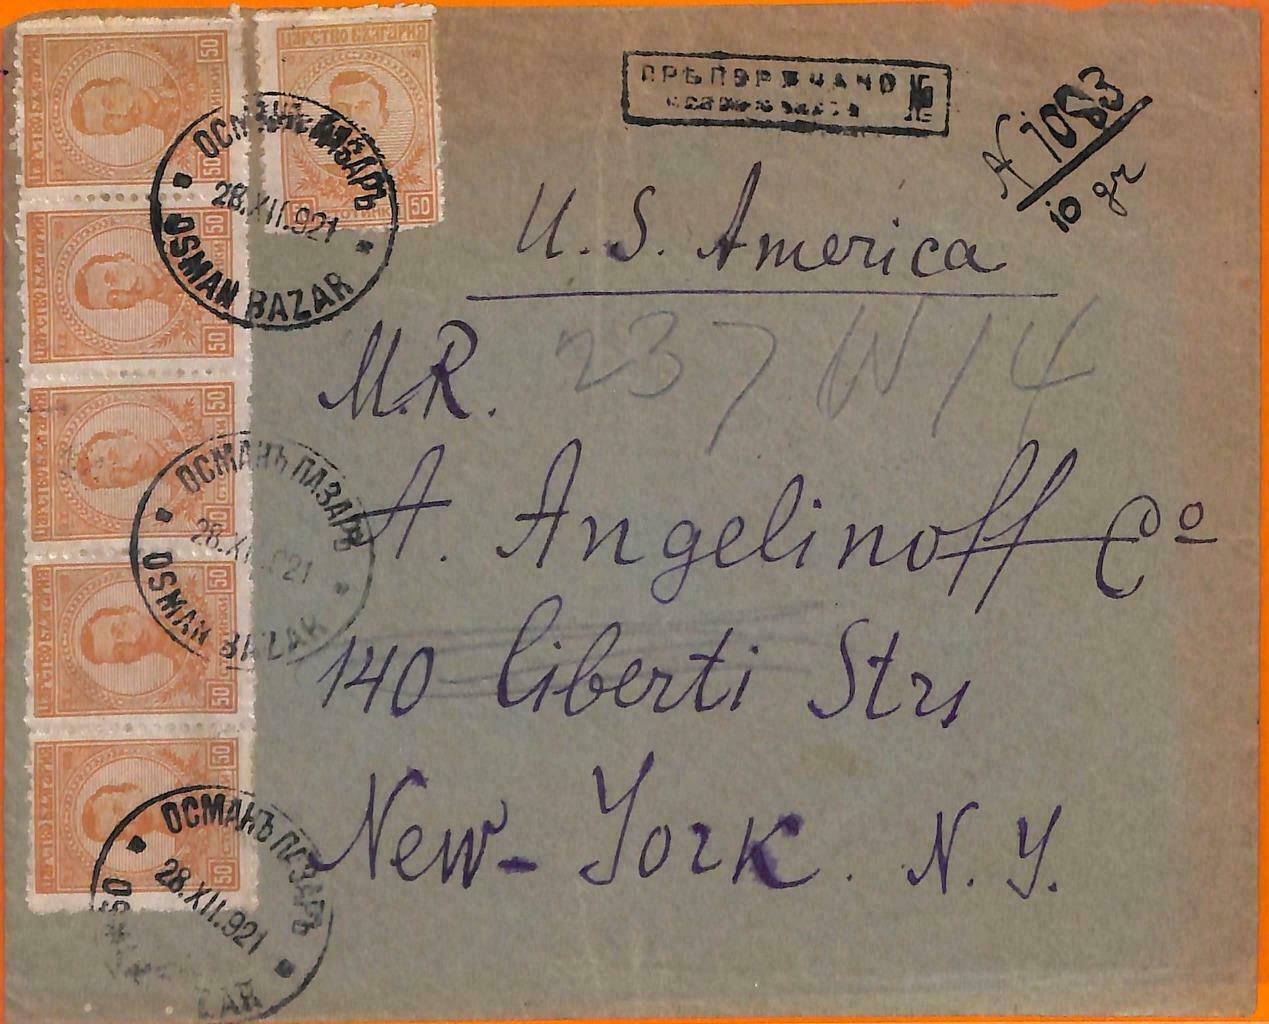 ЦАРСТВО БЪЛГАРИЯ
50
СТОТИНКИ
50
ПРѢПОРѪЧАНО №
N 1083
10 gr
ОСМАНЪ ПАЗАРЪ
28.XII.921
OSMAN BAZAR
U. S. America
M.R. 237 W 14
A. Angelinoff Co
140 Liberti Str
New-York. N. Y.
ЦАРСТВО БЪЛГАРИЯ
50
50
ЦАРСТВО БЪЛГАРИЯ
50
50
ОСМАНЪ ПАЗАРЪ
28.XII.921
OSMAN BAZAR
50
50
50
50
50
50
ОСМАНЪ ПАЗАРЪ
28.XII.921
OSMAN BAZAR